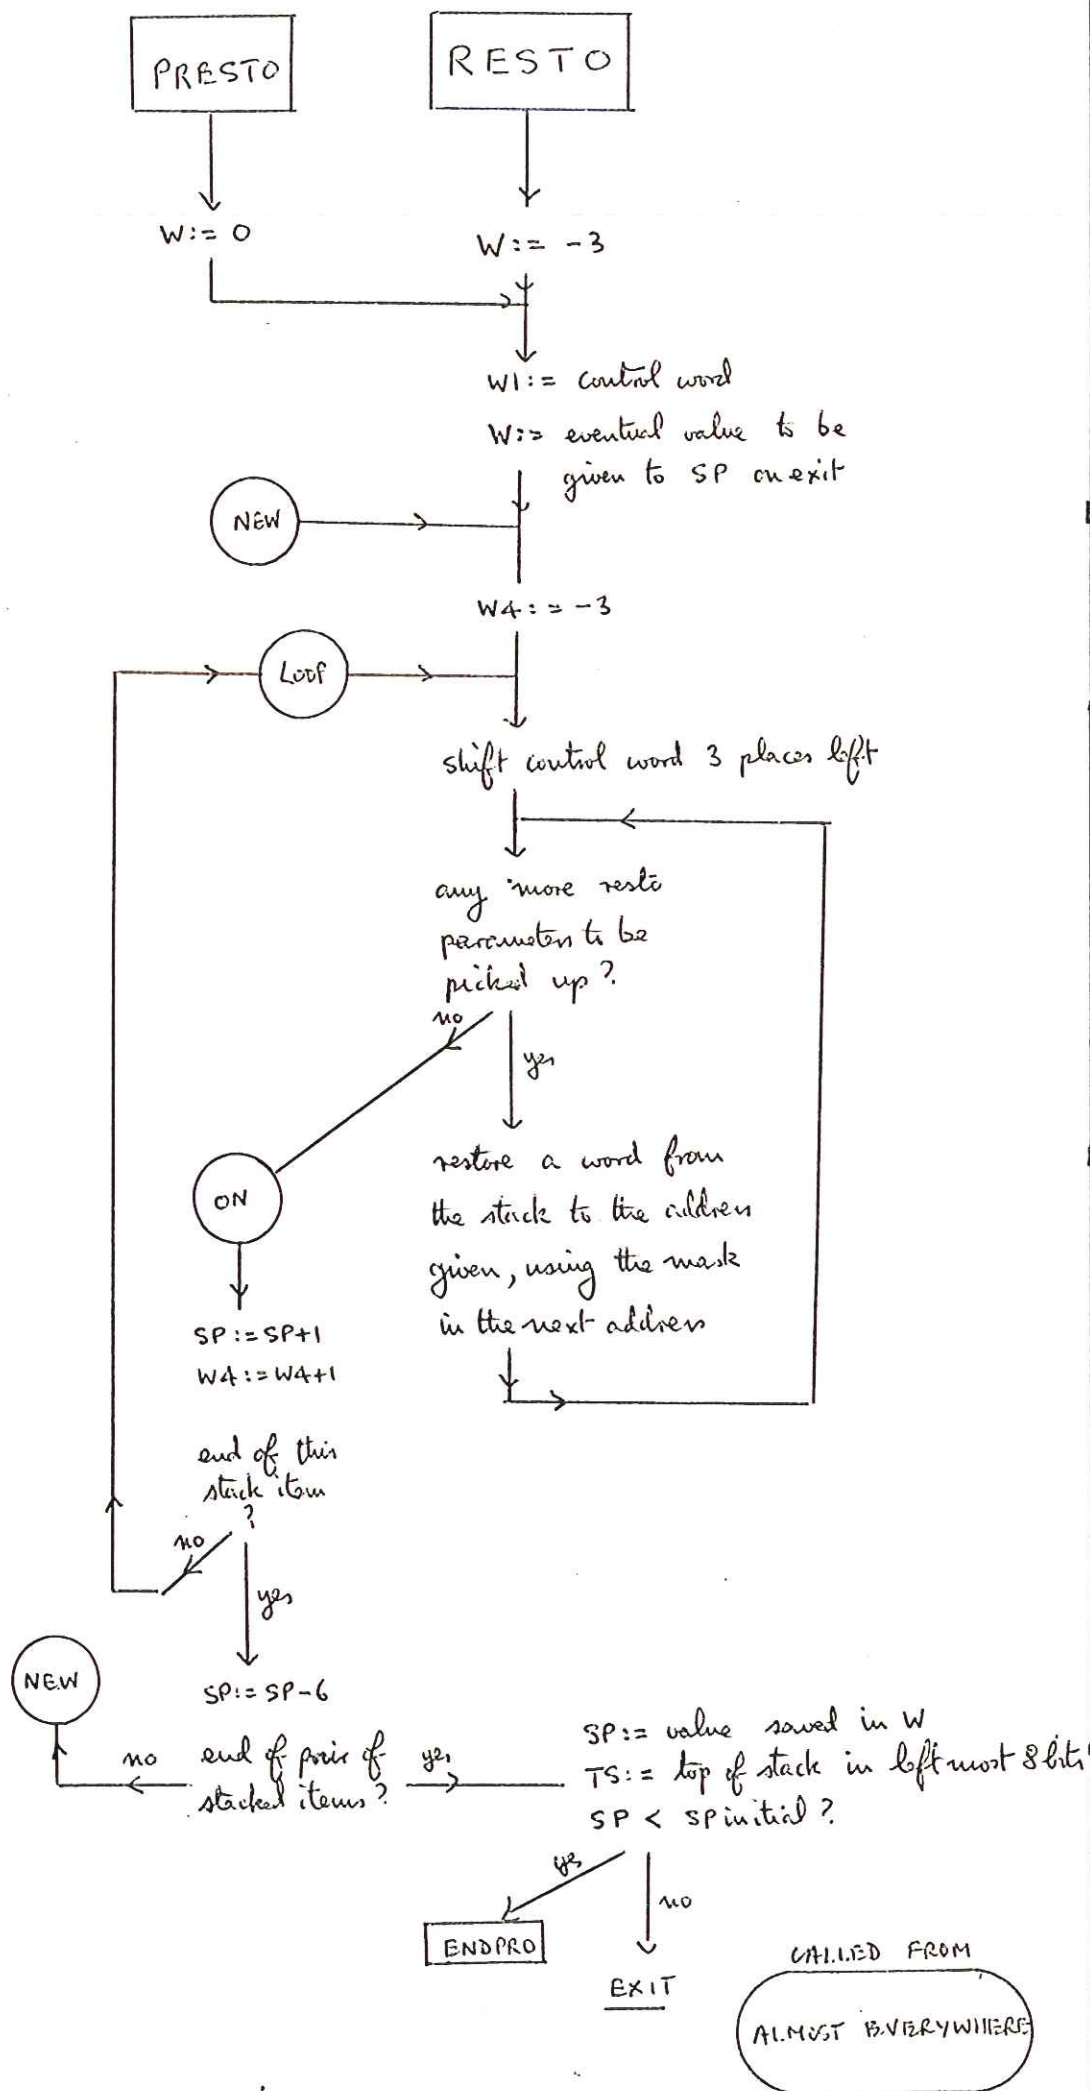 PRESTO
RESTO
W:= 0
W:= -3
W1:= control word
W:= eventual value to be
given to SP on exit
NEW
W4:= -3
LOOP
shift control word 3 places left
any more resto
parameters to be
picked up?
no
yes
restore a word from
the stack to the address
given, using the mask
in the next address
ON
SP:=SP+1
W4:=W4+1
end of this
stack item
?
no
yes
NEW
SP:=SP-6
no
end of pair of
stacked items?
yes
SP:= value saved in W
TS:= top of stack in leftmost 8 bits
SP < SP initial?
yes
no
ENDPRO
EXIT
CALLED FROM
ALMOST EVERYWHERE